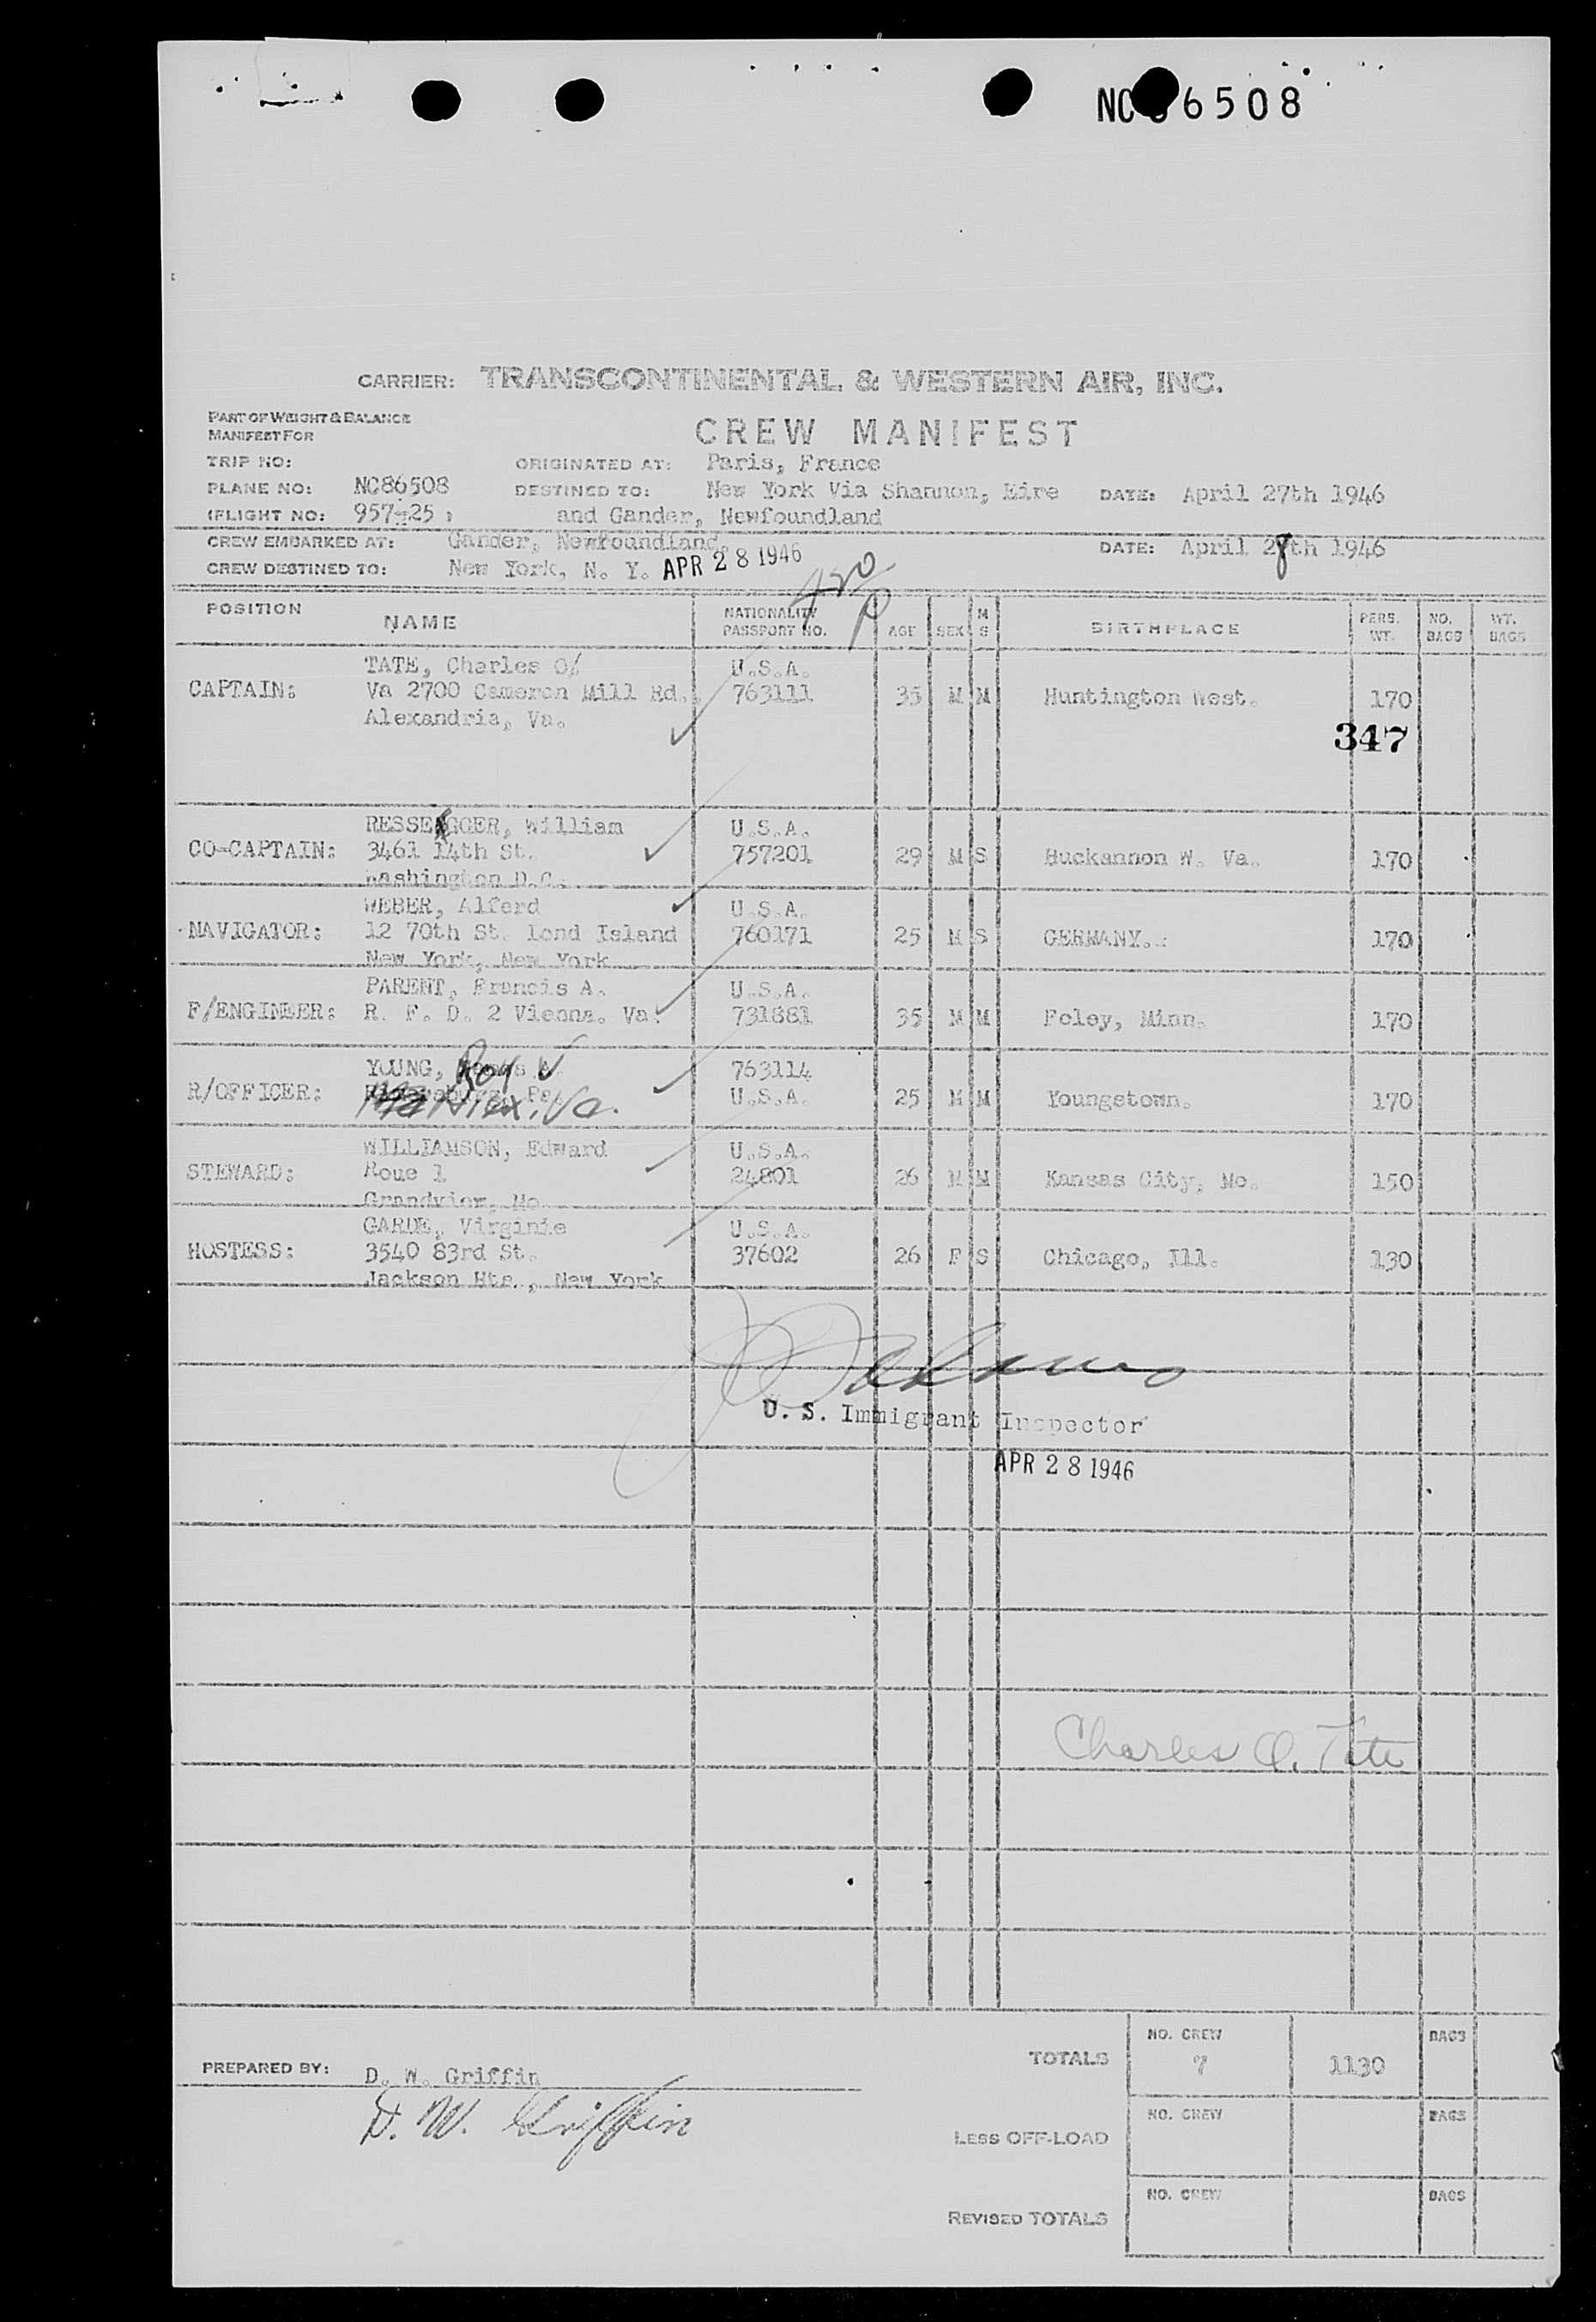 NC 6508
CARRIER: TRANSCONTINENTAL & WESTERN AIR, INC.
PART OF WEIGHT & BALANCE
MANIFEST FOR
CREW MANIFEST
TRIP NO: ORIGINATED AT: Paris, France
PLANE NO: NC86508 DESTINED TO: New York Via Shannon, Eire DATE: April 27th 1946
(FLIGHT NO: 957-25 ) and Gander, Newfoundland
CREW EMBARKED AT: Gander, Newfoundland. DATE: April 28th 1946
CREW DESTINED TO: New York, N. Y. APR 28 1946
POSITION NAME NATIONALITY PASSPORT NO. AGE SEX M S BIRTHPLACE PERS. WT. NO. BAGS WT. BAGS
TATE, Charles O. U.S.A.
CAPTAIN: Va 2700 Cameron Mill Rd. 763111 35 M M Huntington West. 170
Alexandria, Va.
347
RESSEGGER, William U.S.A.
CO-CAPTAIN: 3461 14th St. 757201 29 M S Buckannon W. Va. 170
Washington D.C.
WEBER, Alferd U.S.A.
NAVIGATOR: 12 70th St. lond Island 760171 25 M S GERMANY. 170
New York, New York
PARENT, Francis A. U.S.A.
F/ENGINEER: R. F. D. 2 Vienna. Va. 731881 35 M M Foley, Minn. 170
YOUNG, Roy V 763114
R/OFFICER: Va. U.S.A. 25 M M Youngstown. 170
WILLIAMSON, Edward U.S.A.
STEWARD: Roue 1 24801 26 M M Kansas City, Mo. 150
Grandview, Mo.
GARDE, Virginie U.S.A.
HOSTESS: 3540 83rd St. 37602 26 F S Chicago, Ill. 130
Jackson Hts., New York
U. S. Immigrant Inspector
APR 28 1946
Charles O. Tate
NO. CREW BAGS
PREPARED BY: D. W. Griffin TOTALS 7 1130
D. W. Griffin
NO. CREW BAGS
LESS OFF-LOAD
NO. CREW BAGS
REVISED TOTALS